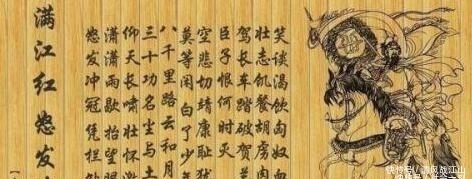 满江红 怒发
怒发冲冠凭栏
潇潇雨歇抬望
仰天长啸壮怀激
三十功名尘与土
八千里路云和月
莫等闲白了少年
空悲切靖康耻犹
臣子恨何时灭
驾长车踏破贺兰
壮志饥餐胡虏肉
笑谈渴饮匈奴血